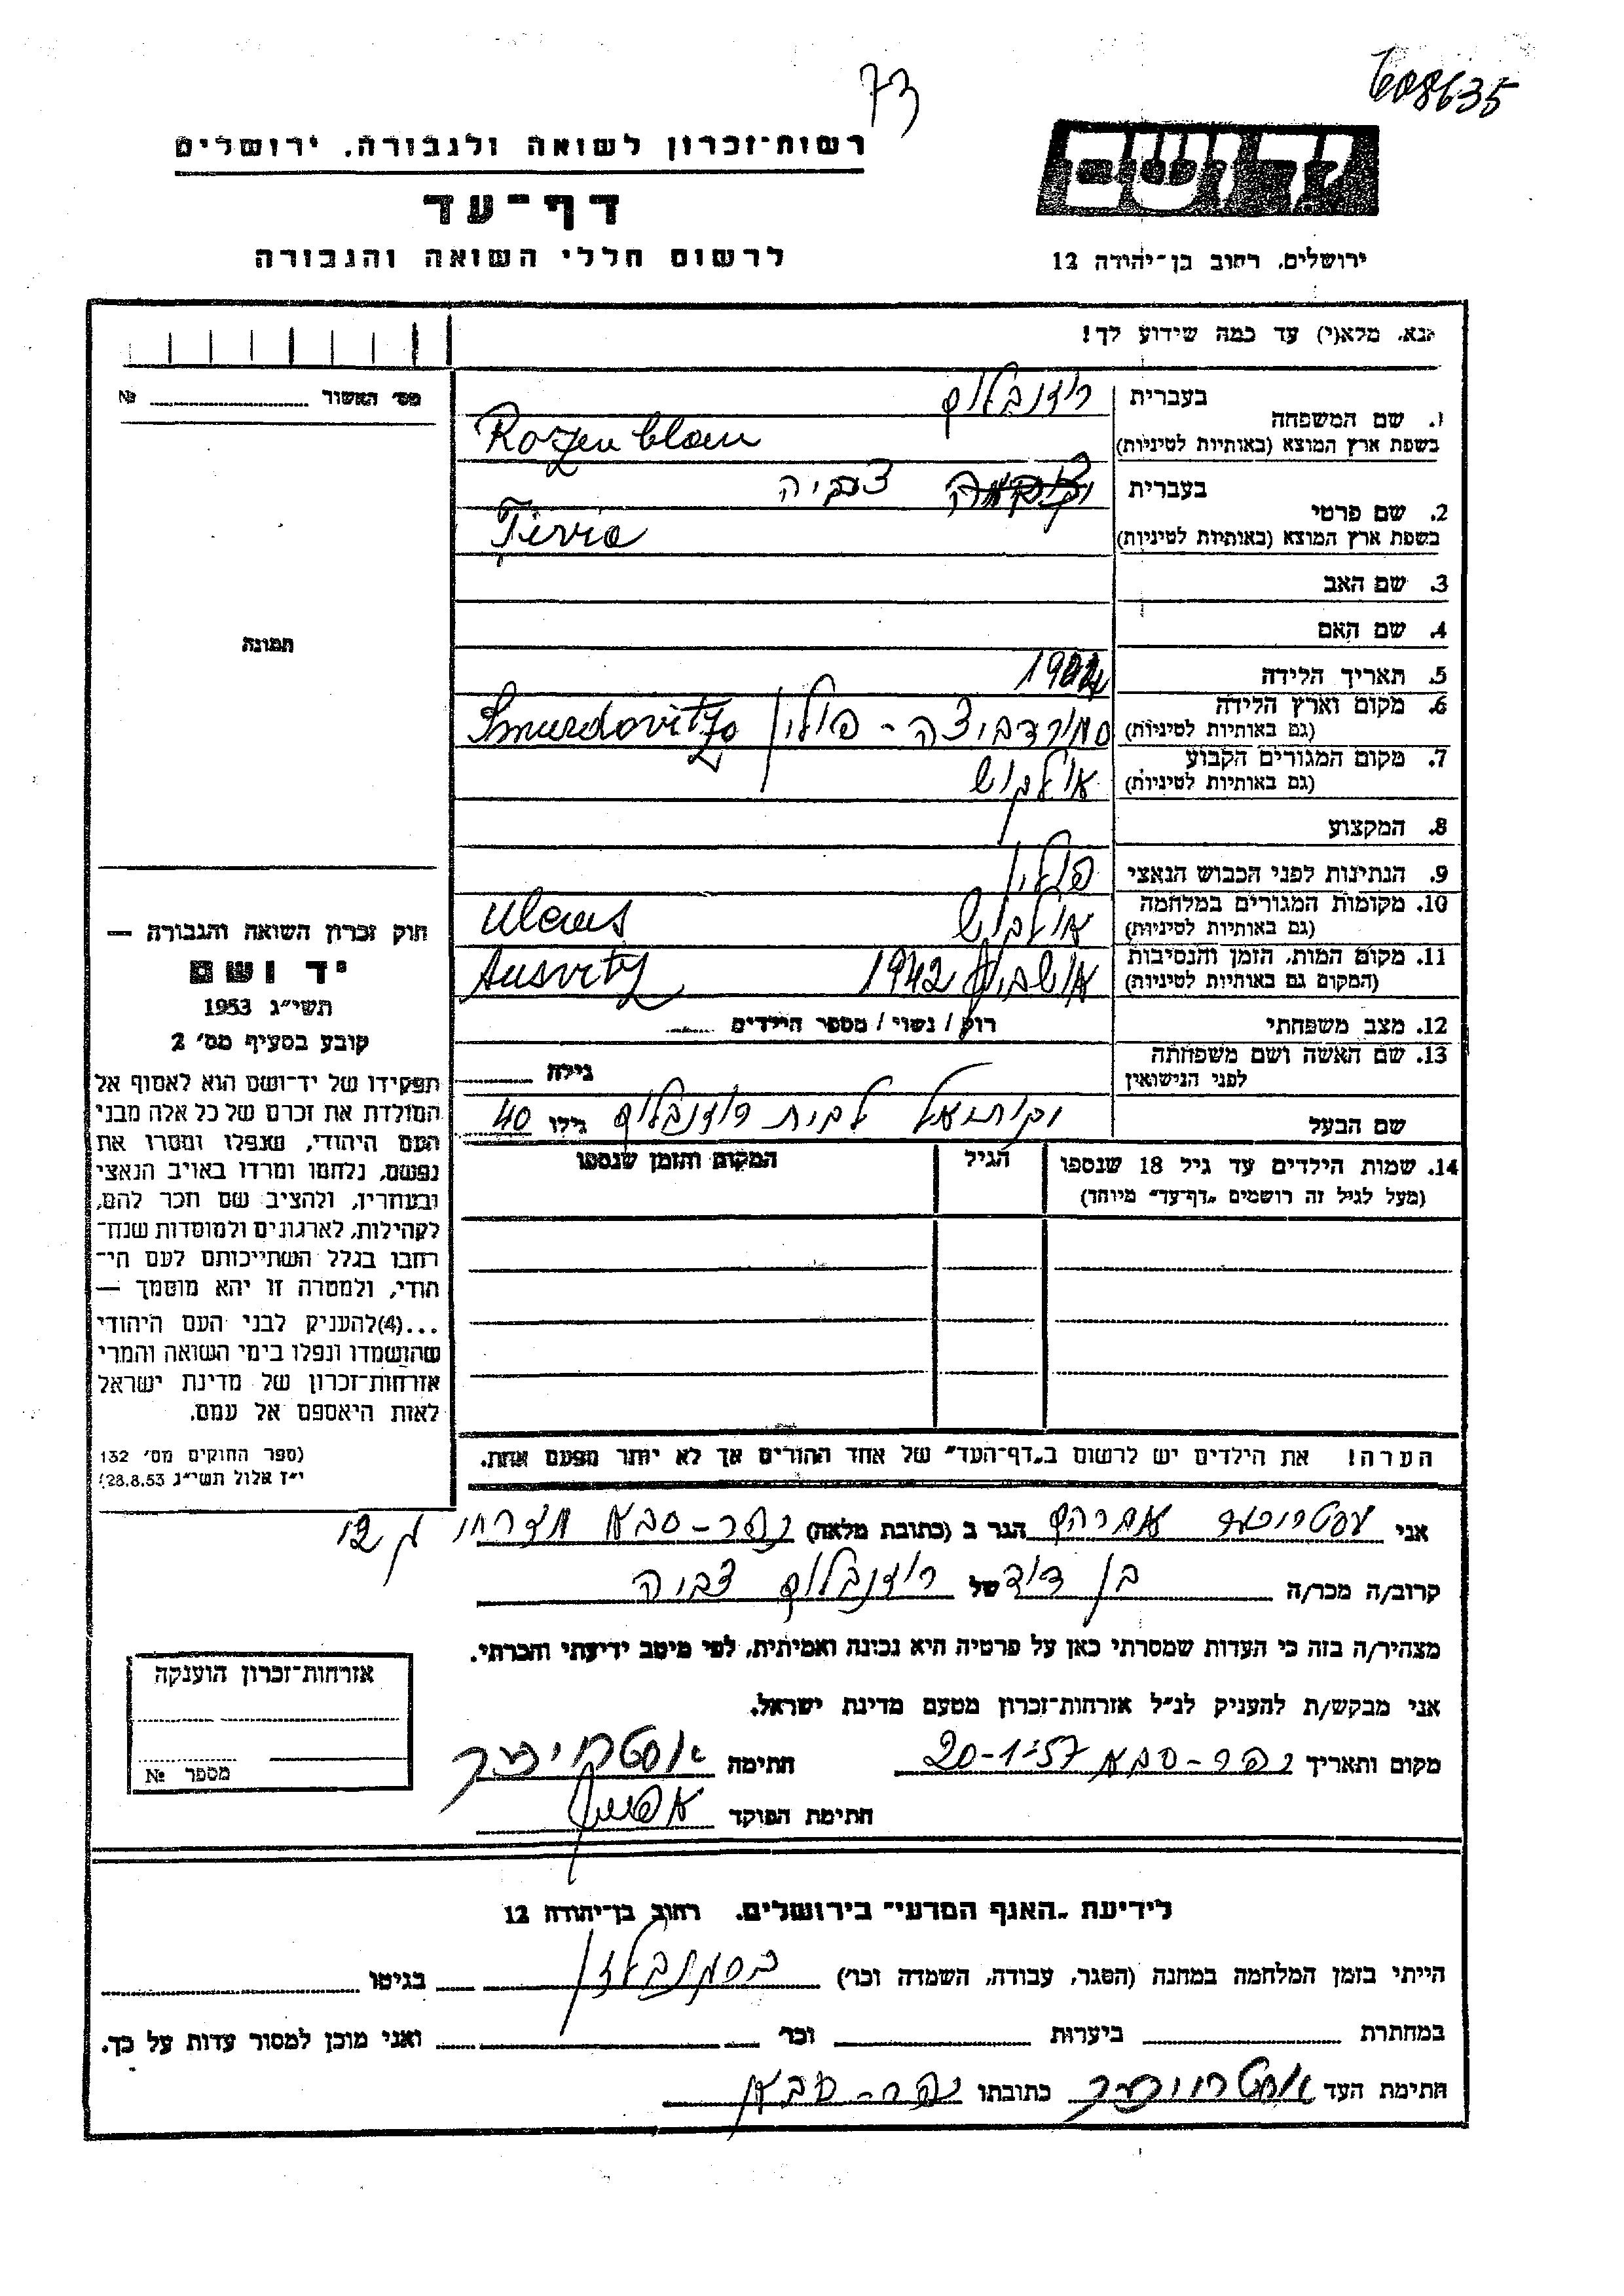 73
608635
רשות־זכרון לשואה ולגבורה, ירושלים
דף־עד
לרשום חללי השואה והגבורה
יד ושם
ירושלים, רחוב בן־יהודה 12
נא, מלא(י) עד כמה שידוע לך!
מס׳ האשור № 
1. שם המשפחה
בעברית רוזנבלום
בשפת ארץ המוצא (באותיות לטיניות) Rozenblom
2. שם פרטי
בעברית צביה
בשפת ארץ המוצא (באותיות לטיניות)
3. שם האב
4. שם האם
5. תאריך הלידה
6. מקום וארץ הלידה
(גם באותיות לטיניות) סמורדביצה - פולין Smurdovitza
7. מקום המגורים הקבוע
(גם באותיות לטיניות) אילקוש
8. המקצוע
9. הנתינות לפני הכבוש הנאצי פולין
10. מקומות המגורים במלחמה
(גם באותיות לטיניות) אילקוש
11. מקום המות, הזמן והנסיבות
(המקום גם באותיות לטיניות) אושביץ 1942 Ausvitz
12. מצב משפחתי רווק / נשוי / מספר הילדים
13. שם האשה ושם משפחתה
לפני הנישואין גילה
שם הבעל יקותיאל לבית רוזנבלום גילו 40
14. שמות הילדים עד גיל 18 שנספו הגיל המקום והזמן שנספו
(מעל לגיל זה רושמים „דף־עד״ מיוחד)
הערה! את הילדים יש לרשום ב„דף־העד״ של אחד ההורים אך לא יותר מפעם אחת.
תמונה
חוק זכרון השואה והגבורה —
יד ושם
תשי״ג 1953
קובע בסעיף מס׳ 2
תפקידו של יד־ושם הוא לאסוף אל
המולדת את זכרם של כל אלה מבני
העם היהודי, שנפלו ומסרו את
נפשם, נלחמו ומרדו באויב הנאצי
ובעוזריו, ולהציב שם וזכר להם,
לקהילות, לארגונים ולמוסדות שנח־
רבו בגלל השתייכותם לעם הי־
הודי, ולמטרה זו יהא מוסמך —
...(4)להעניק לבני העם היהודי
שהושמדו ונפלו בימי השואה והמרי
אזרחות־זכרון של מדינת ישראל
לאות היאספם אל עמם.
(ספר החוקים מס׳ 132
י״ז אלול תשי״ג 28.8.53)
אני אברהם הגר ב (כתובת מלאה) כפר-סבא מזרחי
קרוב/ה מכר/ה בן דוד של רוזנבלום צביה
מצהיר/ה בזה כי העדות שמסרתי כאן על פרטיה היא נכונה ואמיתית, לפי מיטב ידיעתי והכרתי.
אני מבקש/ת להעניק לנ״ל אזרחות־זכרון מטעם מדינת ישראל.
מקום ותאריך כפר-סבא 20-1-57 חתימה
חתימת הפוקד
אזרחות־זכרון הוענקה
מספר №
לידיעת „האגף המדעי״ בירושלים, רחוב בן־יהודה 12
הייתי בזמן המלחמה במחנה (הסגר, עבודה, השמדה וכו׳) בגיטו
במחתרת ביערות וכו׳ ואני מוכן למסור עדות על כך.
חתימת העד כתובתו כפר-סבא